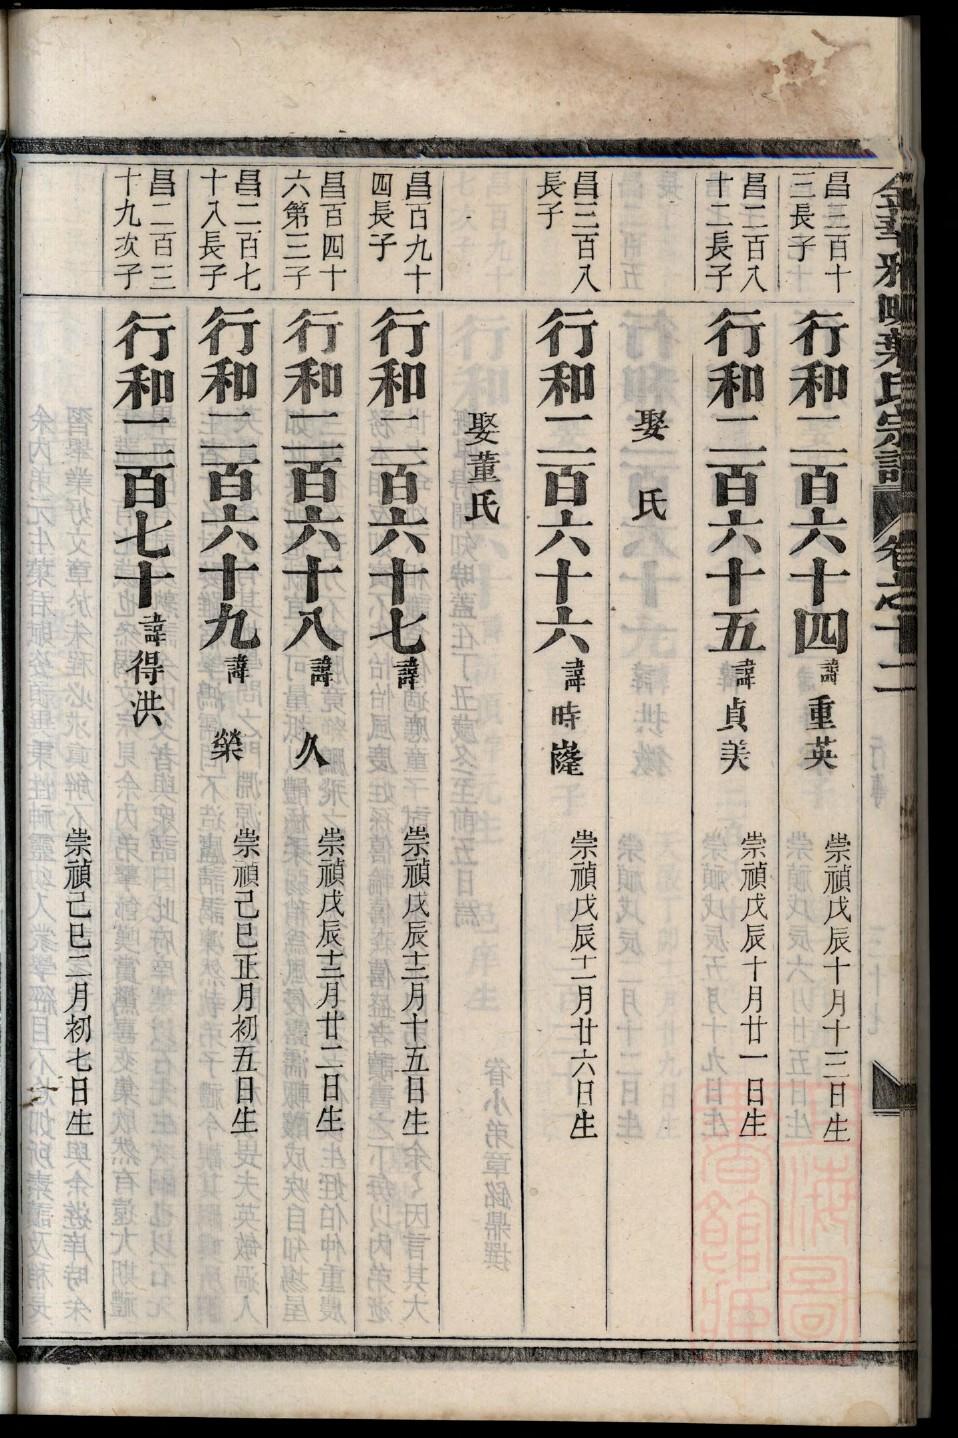 金華雅畈葉氏宗譜 卷之十二
昌三百十三長子
行和二百六十四 諱重英
崇禎戊辰十月十三日生
昌三百八十二長子
行和二百六十五 諱貞美
崇禎戊辰十月廿一日生
娶 氏
昌三百八長子
行和二百六十六 諱時隆
崇禎戊辰十二月廿六日生
娶董氏
昌百九十四長子
行和二百六十七 諱
崇禎戊辰十二月十五日生
昌百四十六第三子
行和二百六十八 諱 久
崇禎戊辰十二月廿二日生
昌二百七十八長子
行和二百六十九 諱 榮
崇禎己巳正月初五日生
昌二百三十九次子
行和二百七十 諱得洪
崇禎己巳二月初七日生